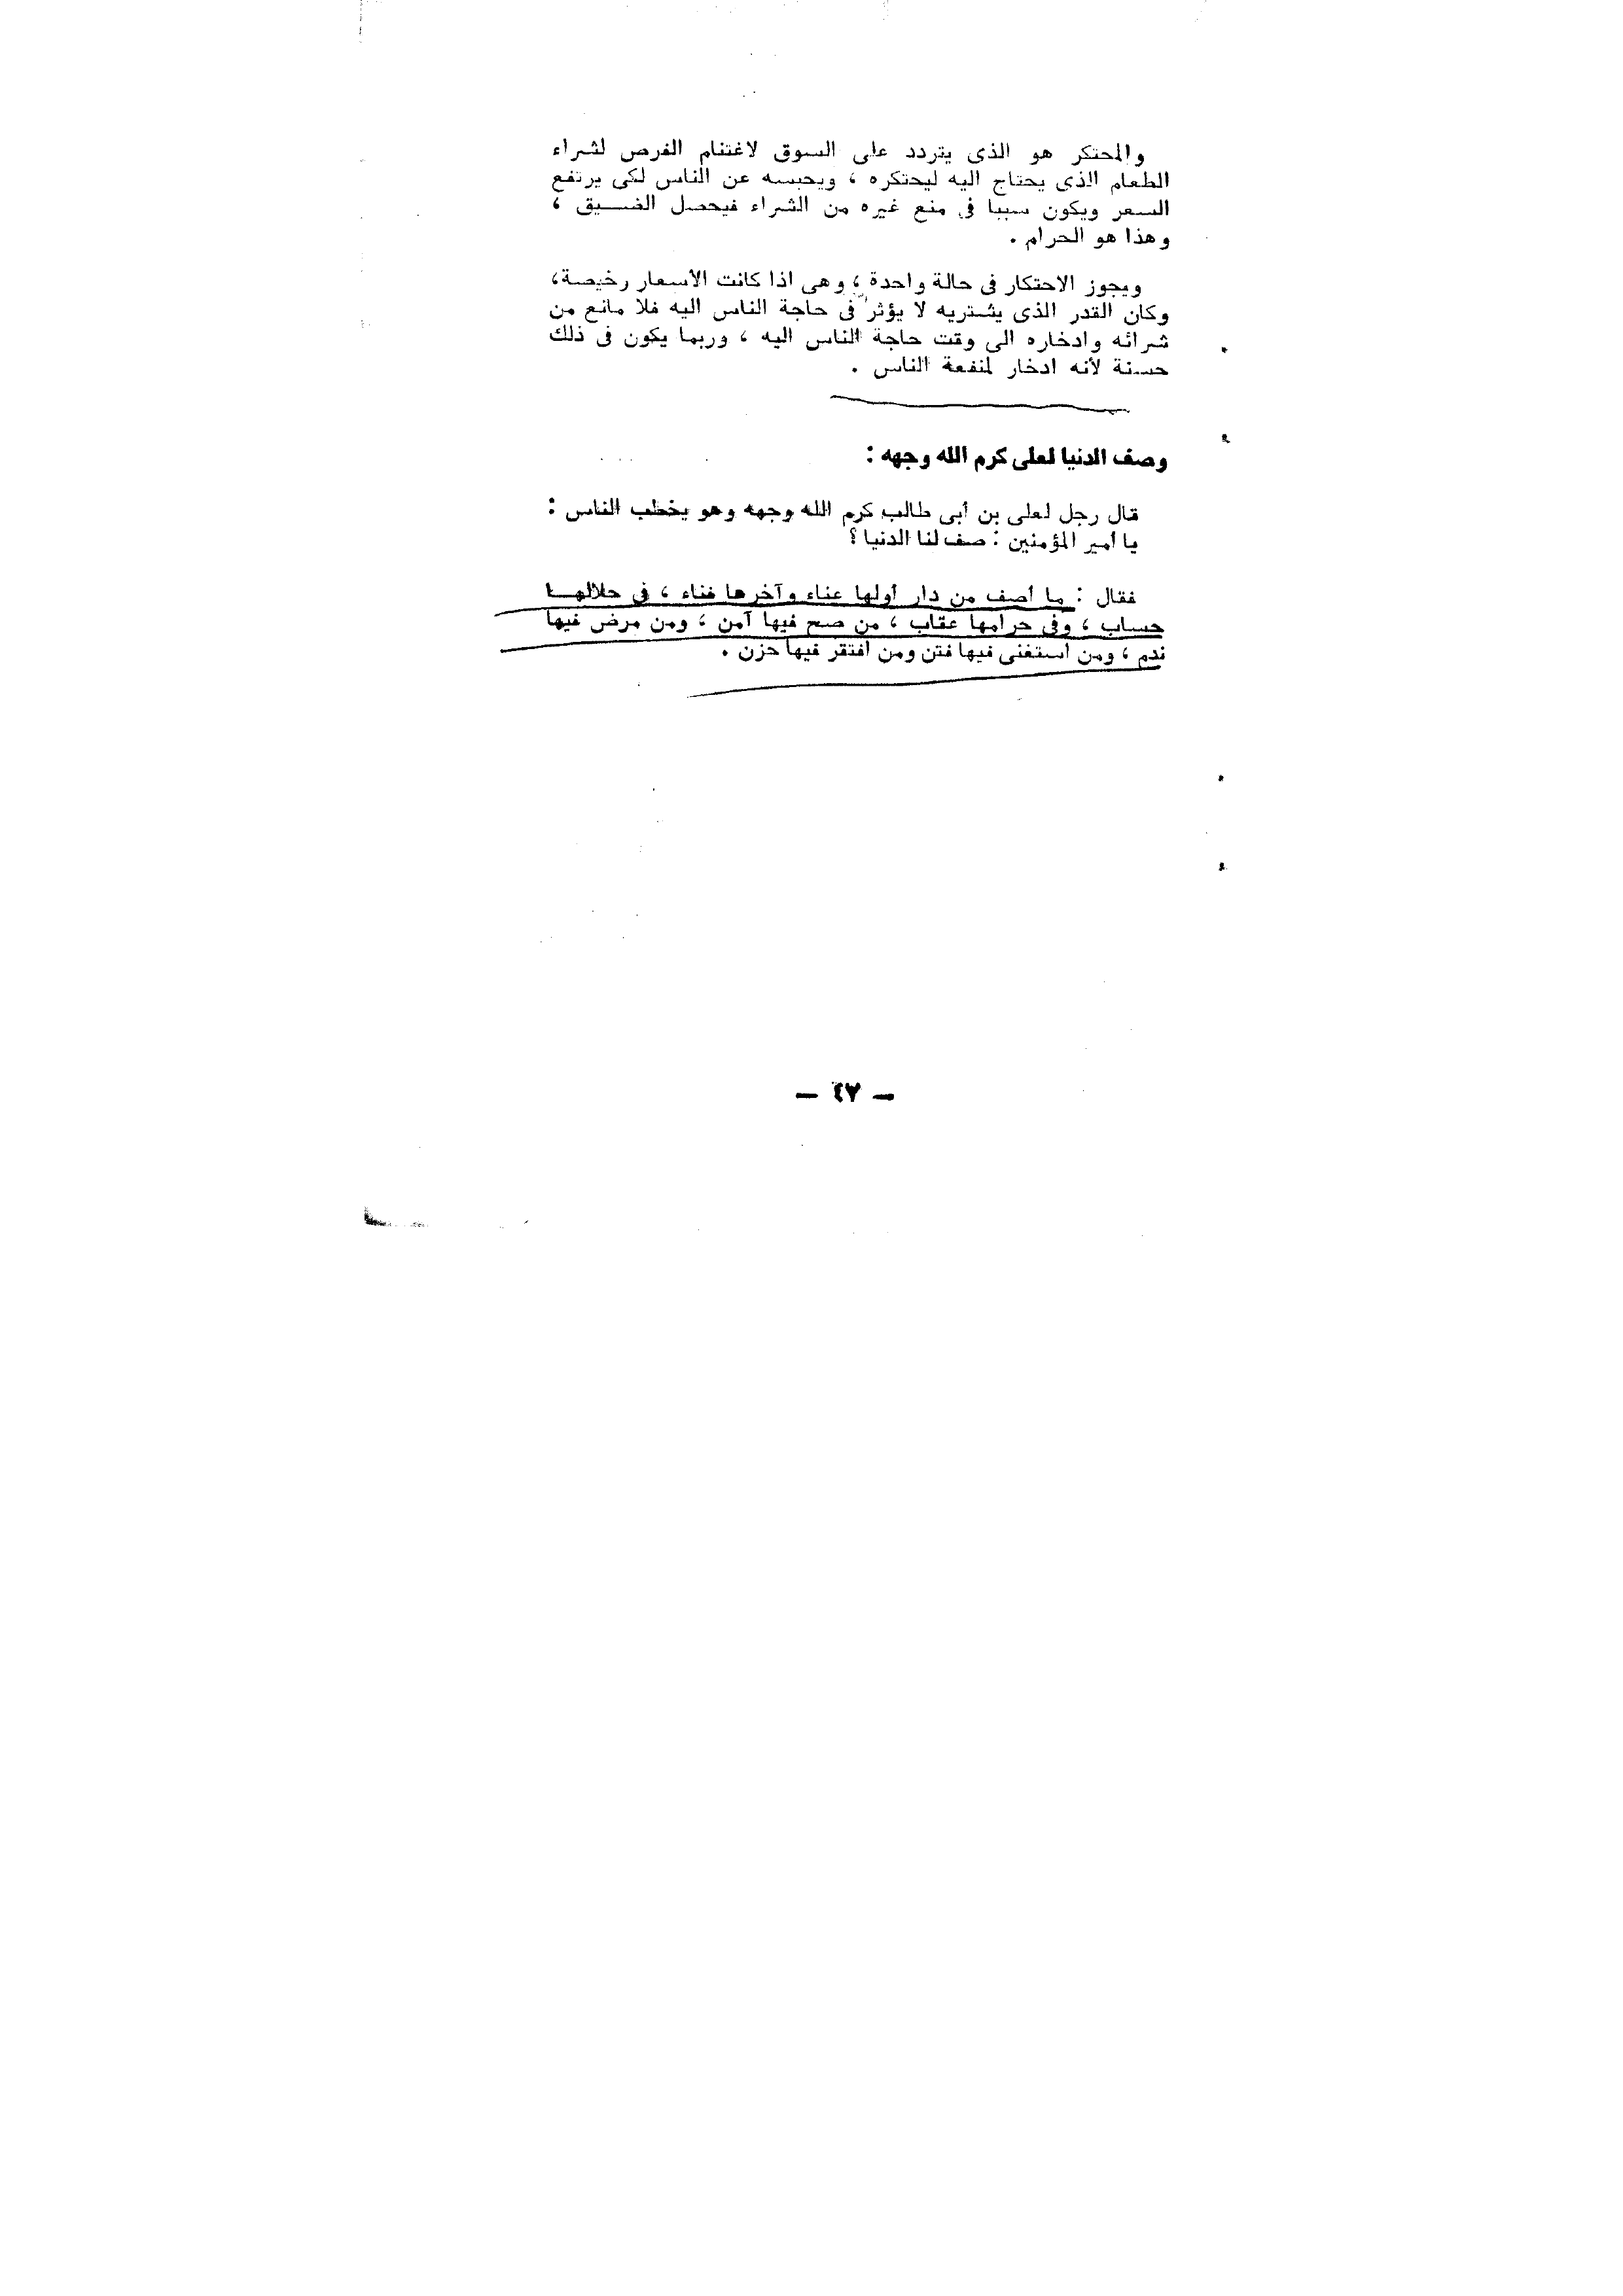 والمحتكر هو الذى يتردد على السوق لاغتنام الفرص لشراء
الطعام الذى يحتاج اليه ليحتكره ، ويحبسه عن الناس لكى يرتفع
السعر ويكون سببا فى منع غيره من الشراء فيحصل الضـــيق ،
وهذا هو الحرام .
ويجوز الاحتكار فى حالة واحدة ، وهى اذا كانت الأسعار رخيصة،
وكان القدر الذى يشتريه لا يؤثر فى حاجة الناس اليه فلا مانع من
شرائه وادخاره الى وقت حاجة الناس اليه ، وربما يكون فى ذلك
حسنة لأنه ادخار لمنفعة الناس .
وصف الدنيا لعلى كرم الله وجهه :
قال رجل لعلى بن أبى طالب كرم الله وجهه وهو يخطب الناس :
يا أمير المؤمنين : صف لنا الدنيا ؟
فقال : ما أصف من دار أولها عناء وآخرها فناء ، فى حلالهــا
حساب ، وفى حرامها عقاب ، من صح فيها آمن ، ومن مرض فيها
ندم ، ومن استغنى فيها فتن ومن افتقر فيها حزن .
— ٤٧ —